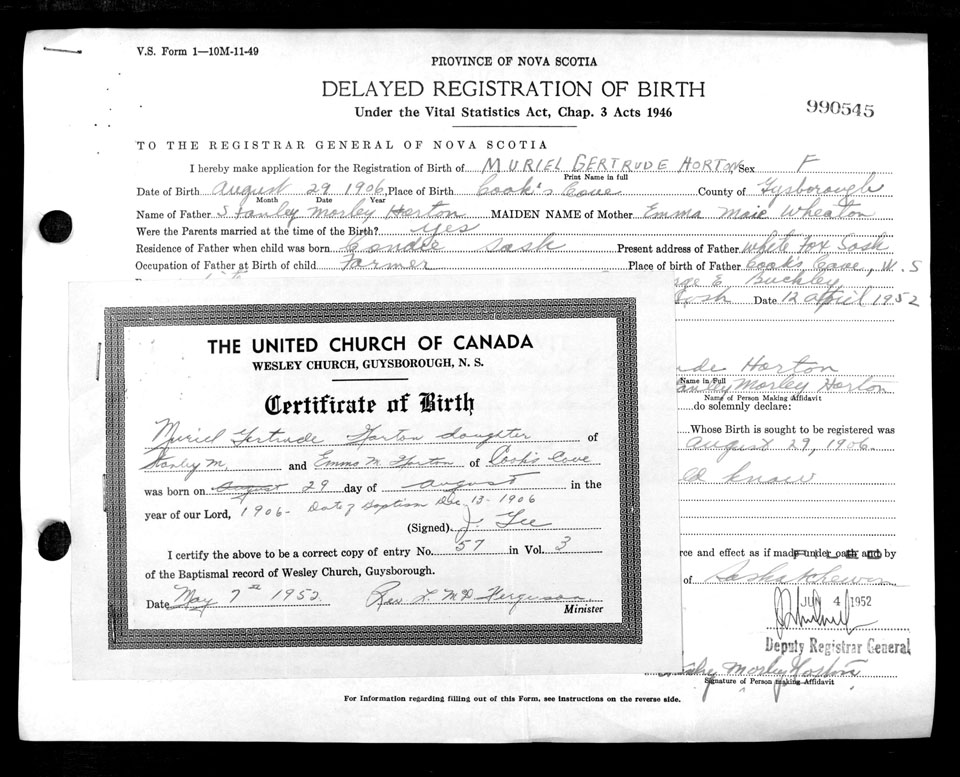 V.S. Form 1—10M-11-49
PROVINCE OF NOVA SCOTIA
DELAYED REGISTRATION OF BIRTH
Under the Vital Statistics Act, Chap. 3 Acts 1946
990545
TO THE REGISTRAR GENERAL OF NOVA SCOTIA
I hereby make application for the Registration of Birth of MURIEL GERTRUDE HORTON Sex F
Print Name in full
Date of Birth August 29 1906, Place of Birth Cook's Cove County of Gysborough
Month Date Year
Name of Father Stanley Morley Horton MAIDEN NAME of Mother Emma Maie Wheaton
Were the Parents married at the time of the Birth? yes
Residence of Father when child was born Condie Sask Present address of Father White Fox Sask
Occupation of Father at Birth of child Farmer Place of birth of Father Cooks Cove, N.S
E Buckley
Date 12 April 1952
THE UNITED CHURCH OF CANADA
WESLEY CHURCH, GUYSBOROUGH, N. S.
Certificate of Birth
Muriel Gertrude Horton daughter of
Stanley M. and Emma M. Horton of Cook's Cove
was born on August 29 day of August in the
year of our Lord, 1906 - Date of Baptism Dec 13 - 1906
(Signed) J. Gee
I certify the above to be a correct copy of entry No. 57 in Vol. 3
of the Baptismal record of Wesley Church, Guysborough.
Date May 7th 1952. Rev L. McD Ferguson
Minister
ude Horton
Name in Full
anley Morley Horton
Name of Person Making Affidavit
do solemnly declare:
Whose Birth is sought to be registered was
August 29, 1906.
know
rce and effect as if made under oath and by
of Saskatchewan
JUN 4 1952
Deputy Registrar General
Stanley Morley Horton
Signature of Person making Affidavit
For Information regarding filling out of this Form, see instructions on the reverse side.